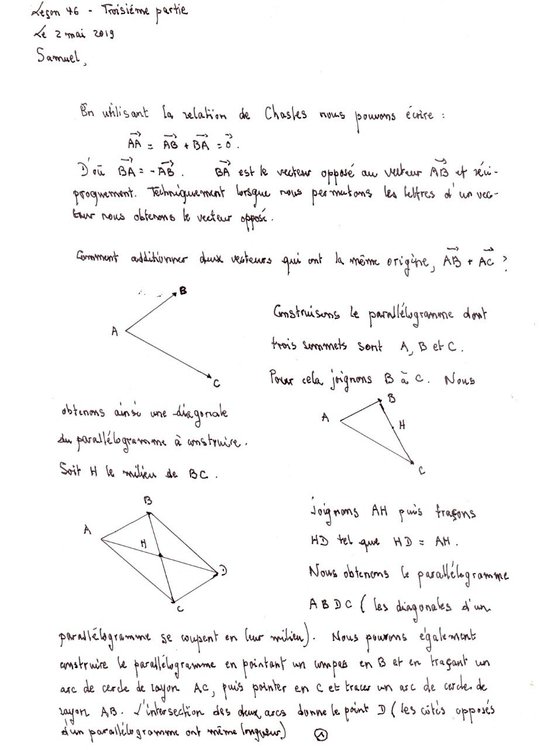 Leçon 46 - Troisième partie
Le 2 mai 2019
Samuel,
En utilisant la relation de Chasles nous pouvons écrire :
AA⃗ = AB⃗ + BA⃗ = 0⃗.
D'où BA⃗ = -AB⃗. BA⃗ est le vecteur opposé au vecteur AB⃗ et réci-
proquement. Techniquement lorsque nous permutons les lettres d'un vec-
teur nous obtenons le vecteur opposé.
Comment additionner deux vecteurs qui ont la même origine, AB⃗ + AC⃗ ?
B
A
C
Construisons le parallélogramme dont
trois sommets sont A, B et C.
Pour cela joignons B à C. Nous
obtenons ainsi une diagonale
du parallélogramme à construire.
Soit H le milieu de BC.
B
A
H
C
B
A
H
D
C
Joignons AH puis traçons
HD tel que HD = AH.
Nous obtenons le parallélogramme
ABDC (les diagonales d'un
parallélogramme se coupent en leur milieu). Nous pouvons également
construire le parallélogramme en pointant un compas en B et en traçant un
arc de cercle de rayon AC, puis pointer en C et tracer un arc de cercle de
rayon AB. L'intersection des deux arcs donne le point D (les côtés opposés
d'un parallélogramme ont même longueur)